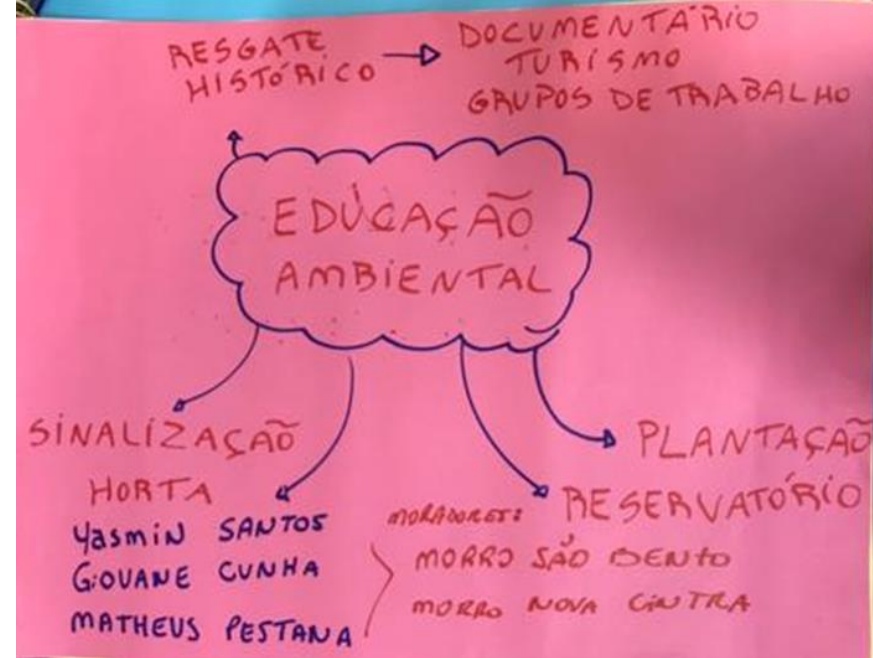 RESGATE
HISTÓRICO
DOCUMENTÁRIO
TURISMO
GRUPOS DE TRABALHO
EDUCAÇÃO
AMBIENTAL
SINALIZAÇÃO
HORTA
PLANTAÇÃO
RESERVATÓRIO
YASMIN SANTOS
GIOVANE CUNHA
MATHEUS PESTANA
MORADORES:
MORRO SÃO BENTO
MORRO NOVA CINTRA